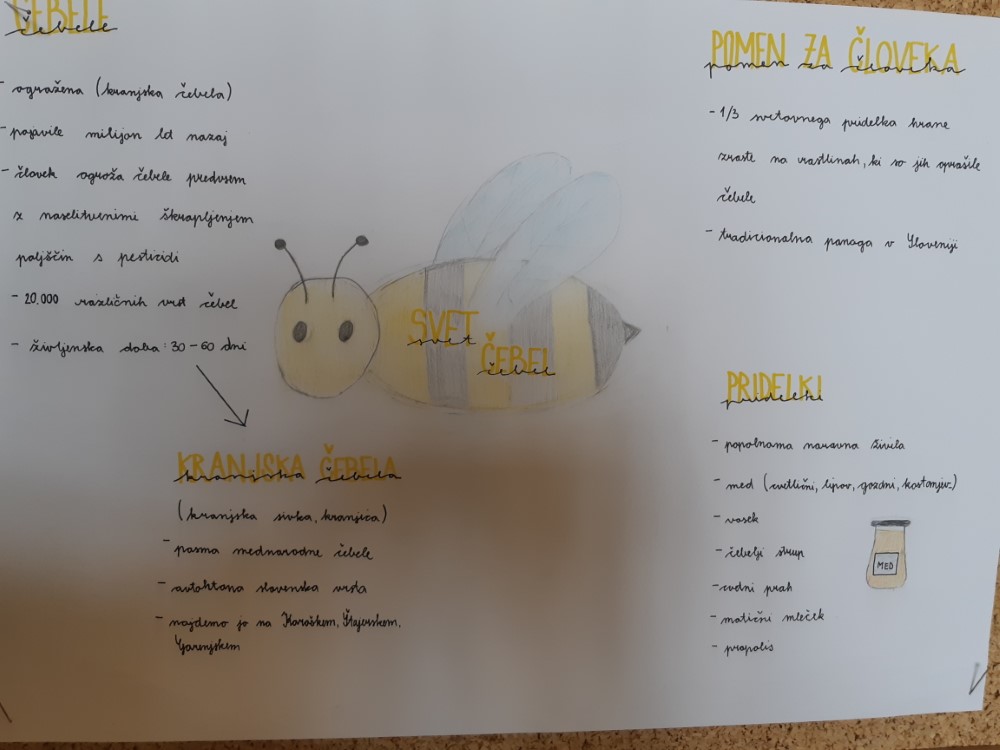 ČEBELE
čebele
- ogražena (kranjska čebela)
- pojavile milijon let nazaj
- človek ogroža čebele predvsem
z naselitvenimi škrapljenjem
poljščin s pesticidi
- 20.000 različnih vrst čebel
- življenska doba: 30-60 dni
KRANJSKA ČEBELA
kranjska čebela
(kranjska sivka, kranjica)
- pasma mednarodne čebele
- avtohtona slovenska vrsta
- najdemo jo na Koroškem, Štajerskem,
Gorenjskem
SVET
svet
ČEBEL
čebel
POMEN ZA ČLOVEKA
pomen za človeka
- 1/3 svetovnega pridelka hrane
zraste na rastlinah, ki so jih oprašile
čebele
- tradicionalna panoga v Sloveniji
PRIDELKI
pridelki
- popolnama naravna živila
- med (cvetlični, lipov, gozdni, kostanjev...)
- vosek
- čebelji strup
- cvetni prah
- matični mleček
- propolis
MED